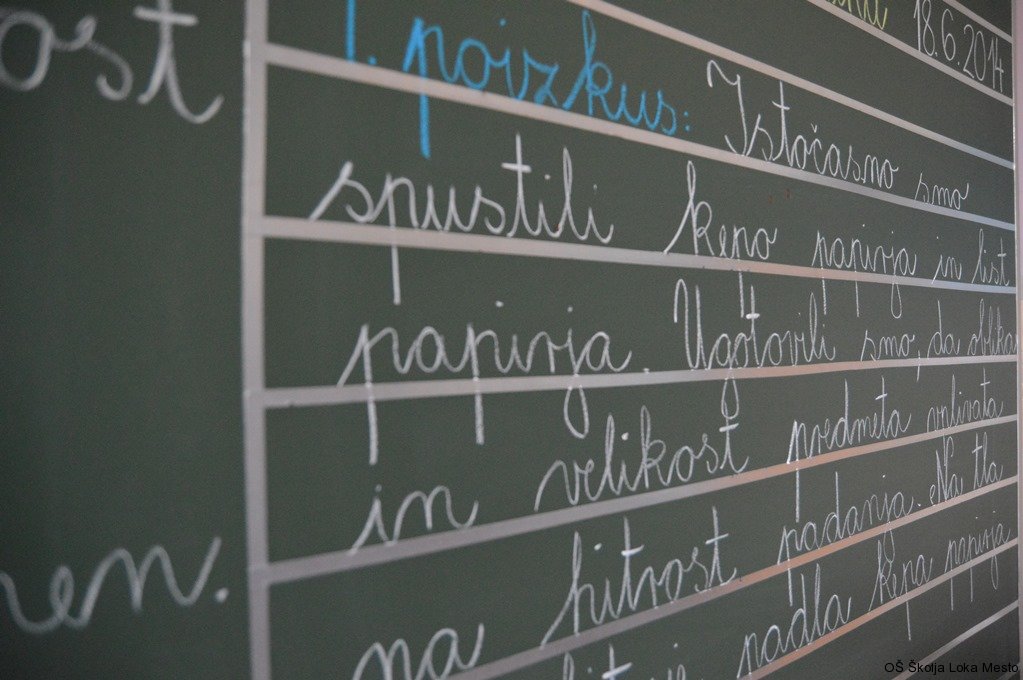 ost
18.6.2014
1. poizkus: Istočasno smo
spustili kepo papirja in list
papirja. Ugotovili smo, da oblika
in velikost predmeta vplivata
na hitrost padanja. Na tla
padla kepa papirja
OŠ Škofja Loka Mesto